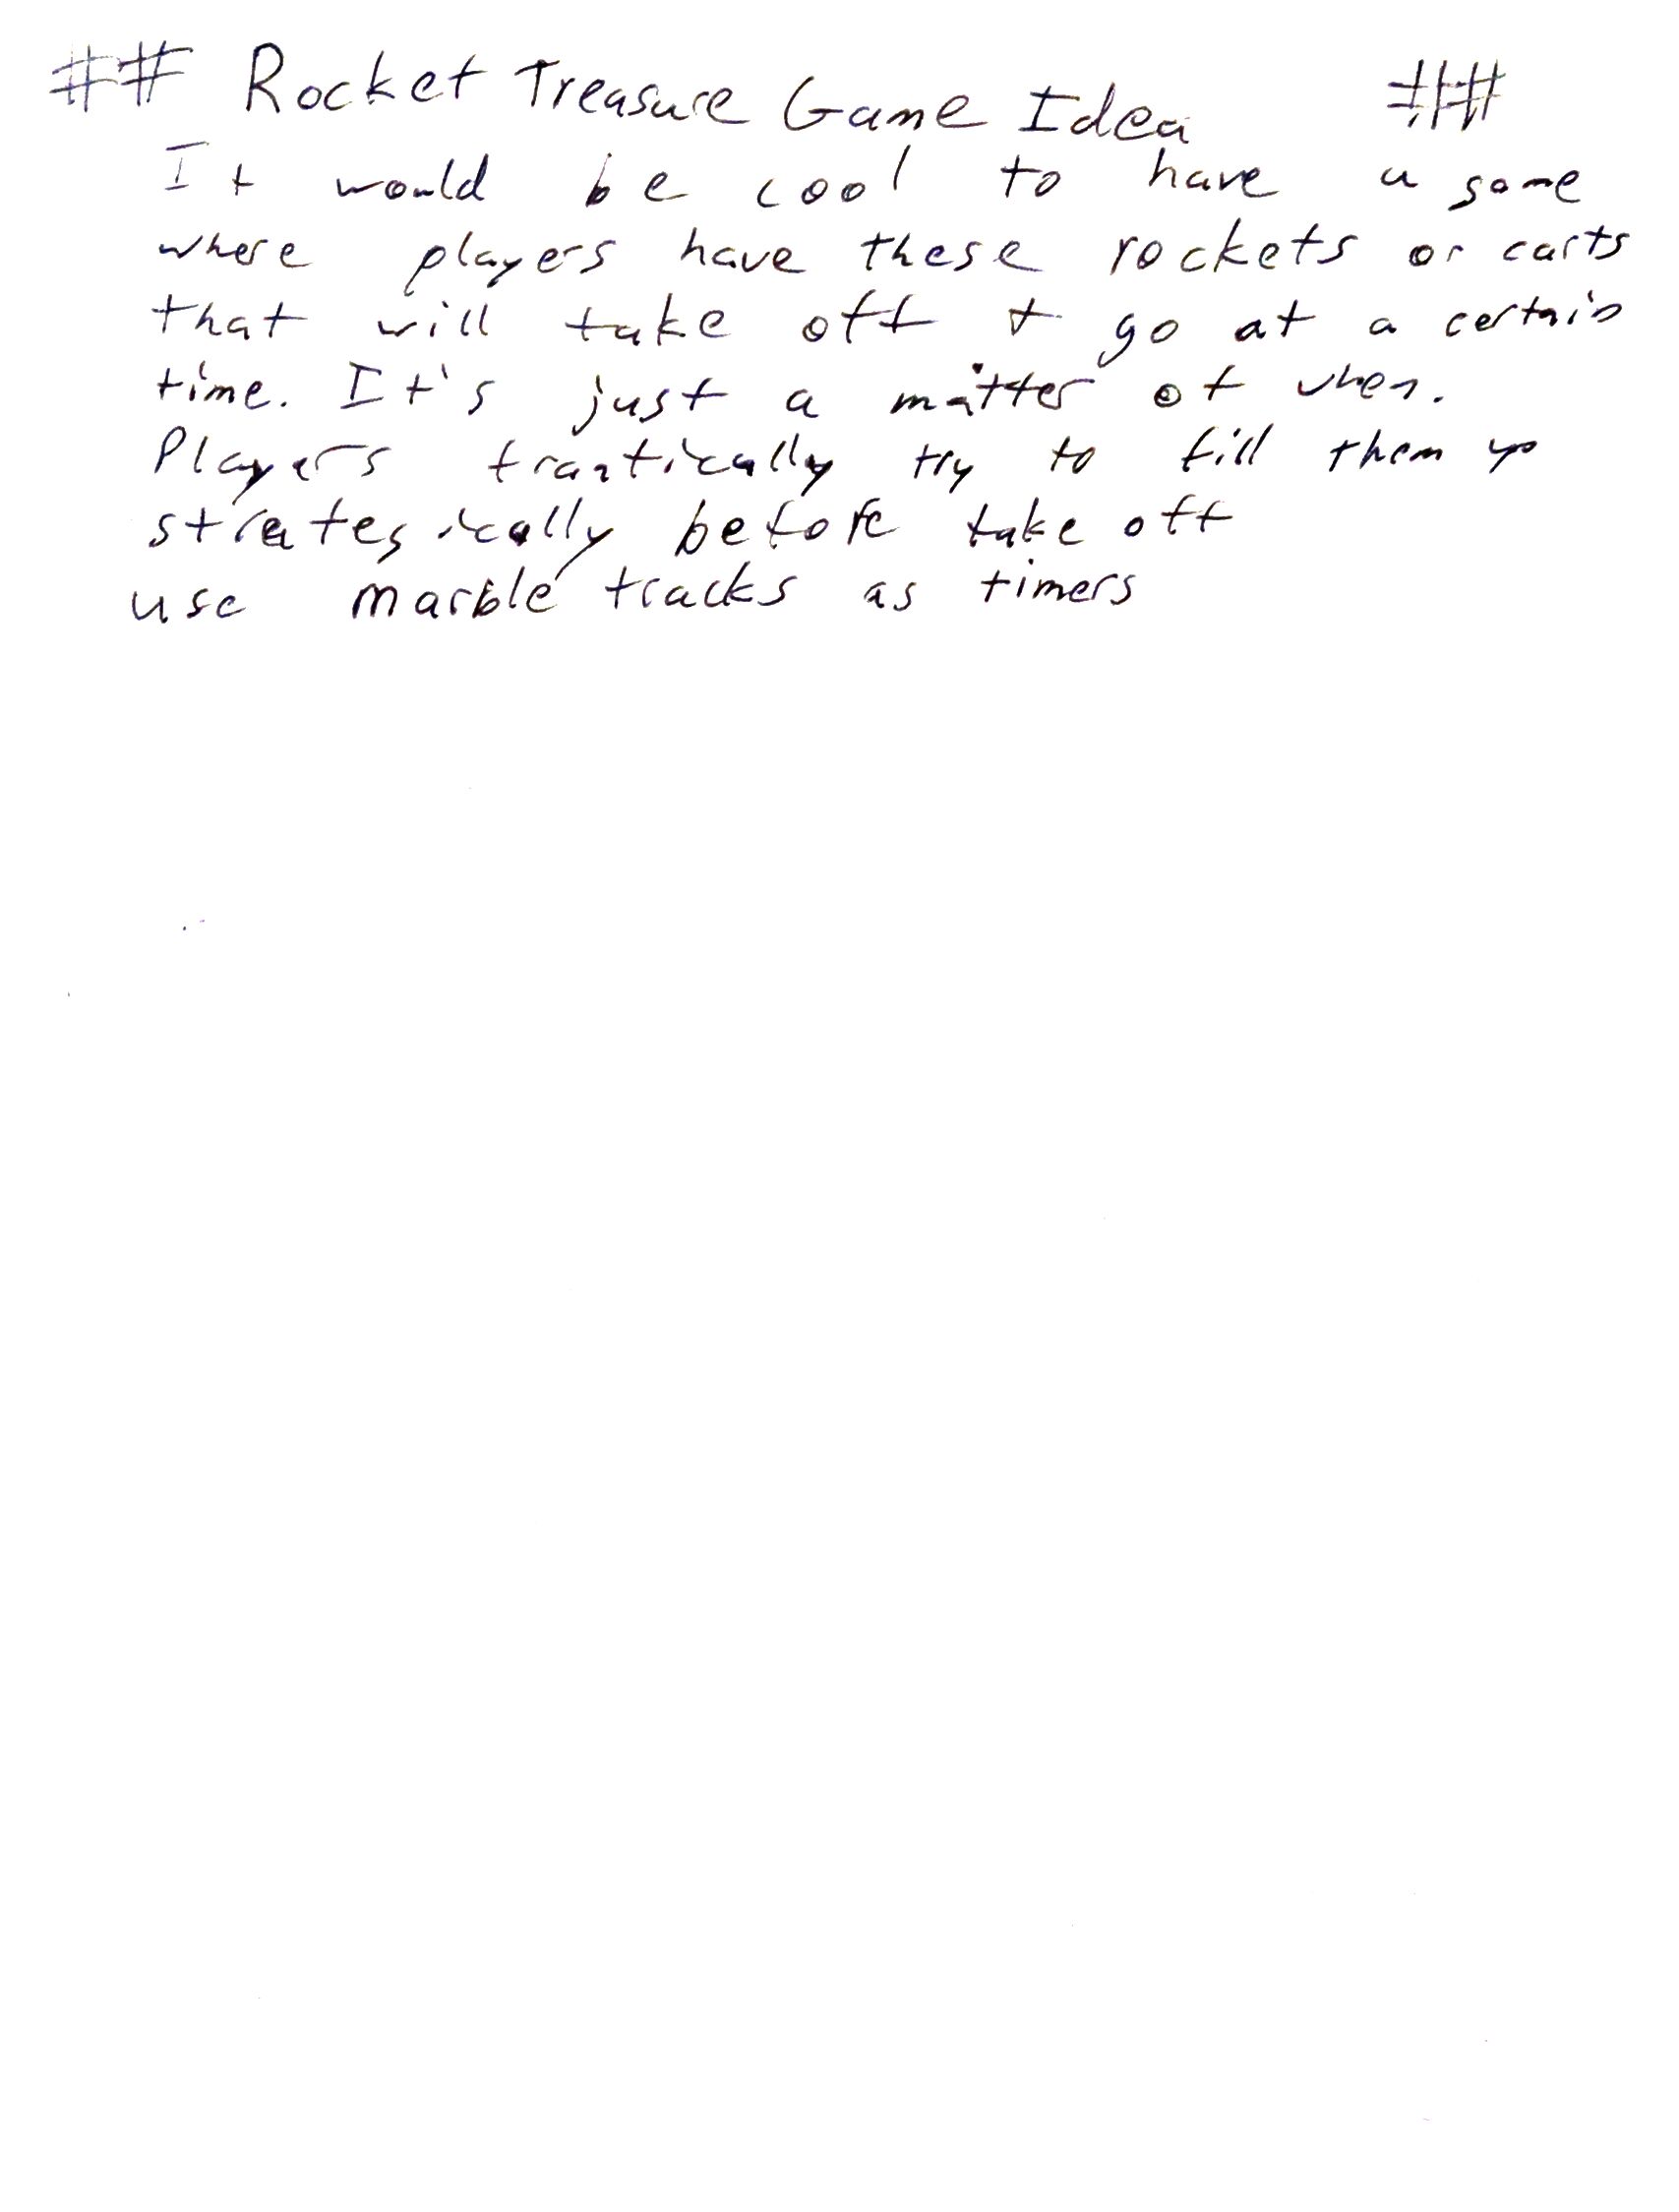 ## Rocket Treasure Game Idea ##
It would be cool to have a game
where players have these rockets or carts
that will take off & go at a certain
time. It's just a matter of when.
Players frantically try to fill them up
strategically before take off
use marble tracks as timers